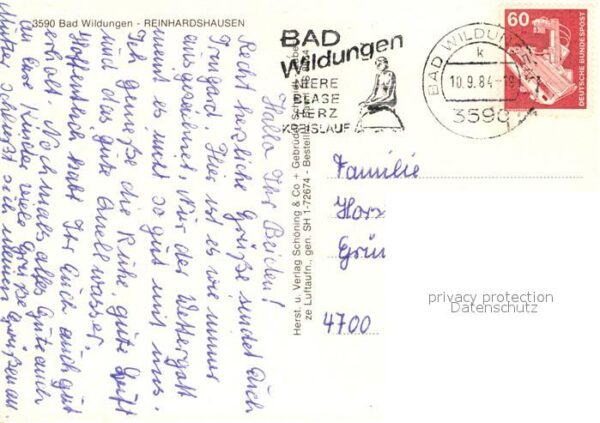 3590 Bad Wildungen - REINHARDSHAUSEN
Hallo Ihr Beiden!
Recht herzliche Grüße sendet Euch
Irmgard. Hier ist es wie immer
ausgezeichnet, Nur der Wettergott
meint es nicht so gut mit uns.
Ich genieße die Ruhe, gute Luft
und das gute Quellwasser.
Hoffentlich habt Ihr Euch auch gut
erholt. Nochmals alles Gute auch
den Kinder viele Grüße
sich meinen Grüßen an
Herst. u. Verlag Schöning & Co + Gebrüder
ze Luftaufn., gen. SH 1-72674 - Bestell
BAD
Wildungen
NIERE
BLASE
HERZ
KREISLAUF
BAD WILDUNGEN
k
10.9.84-18
3590
60
DEUTSCHE BUNDESPOST
Familie
Hors
Grün
4700
privacy protection
Datenschutz